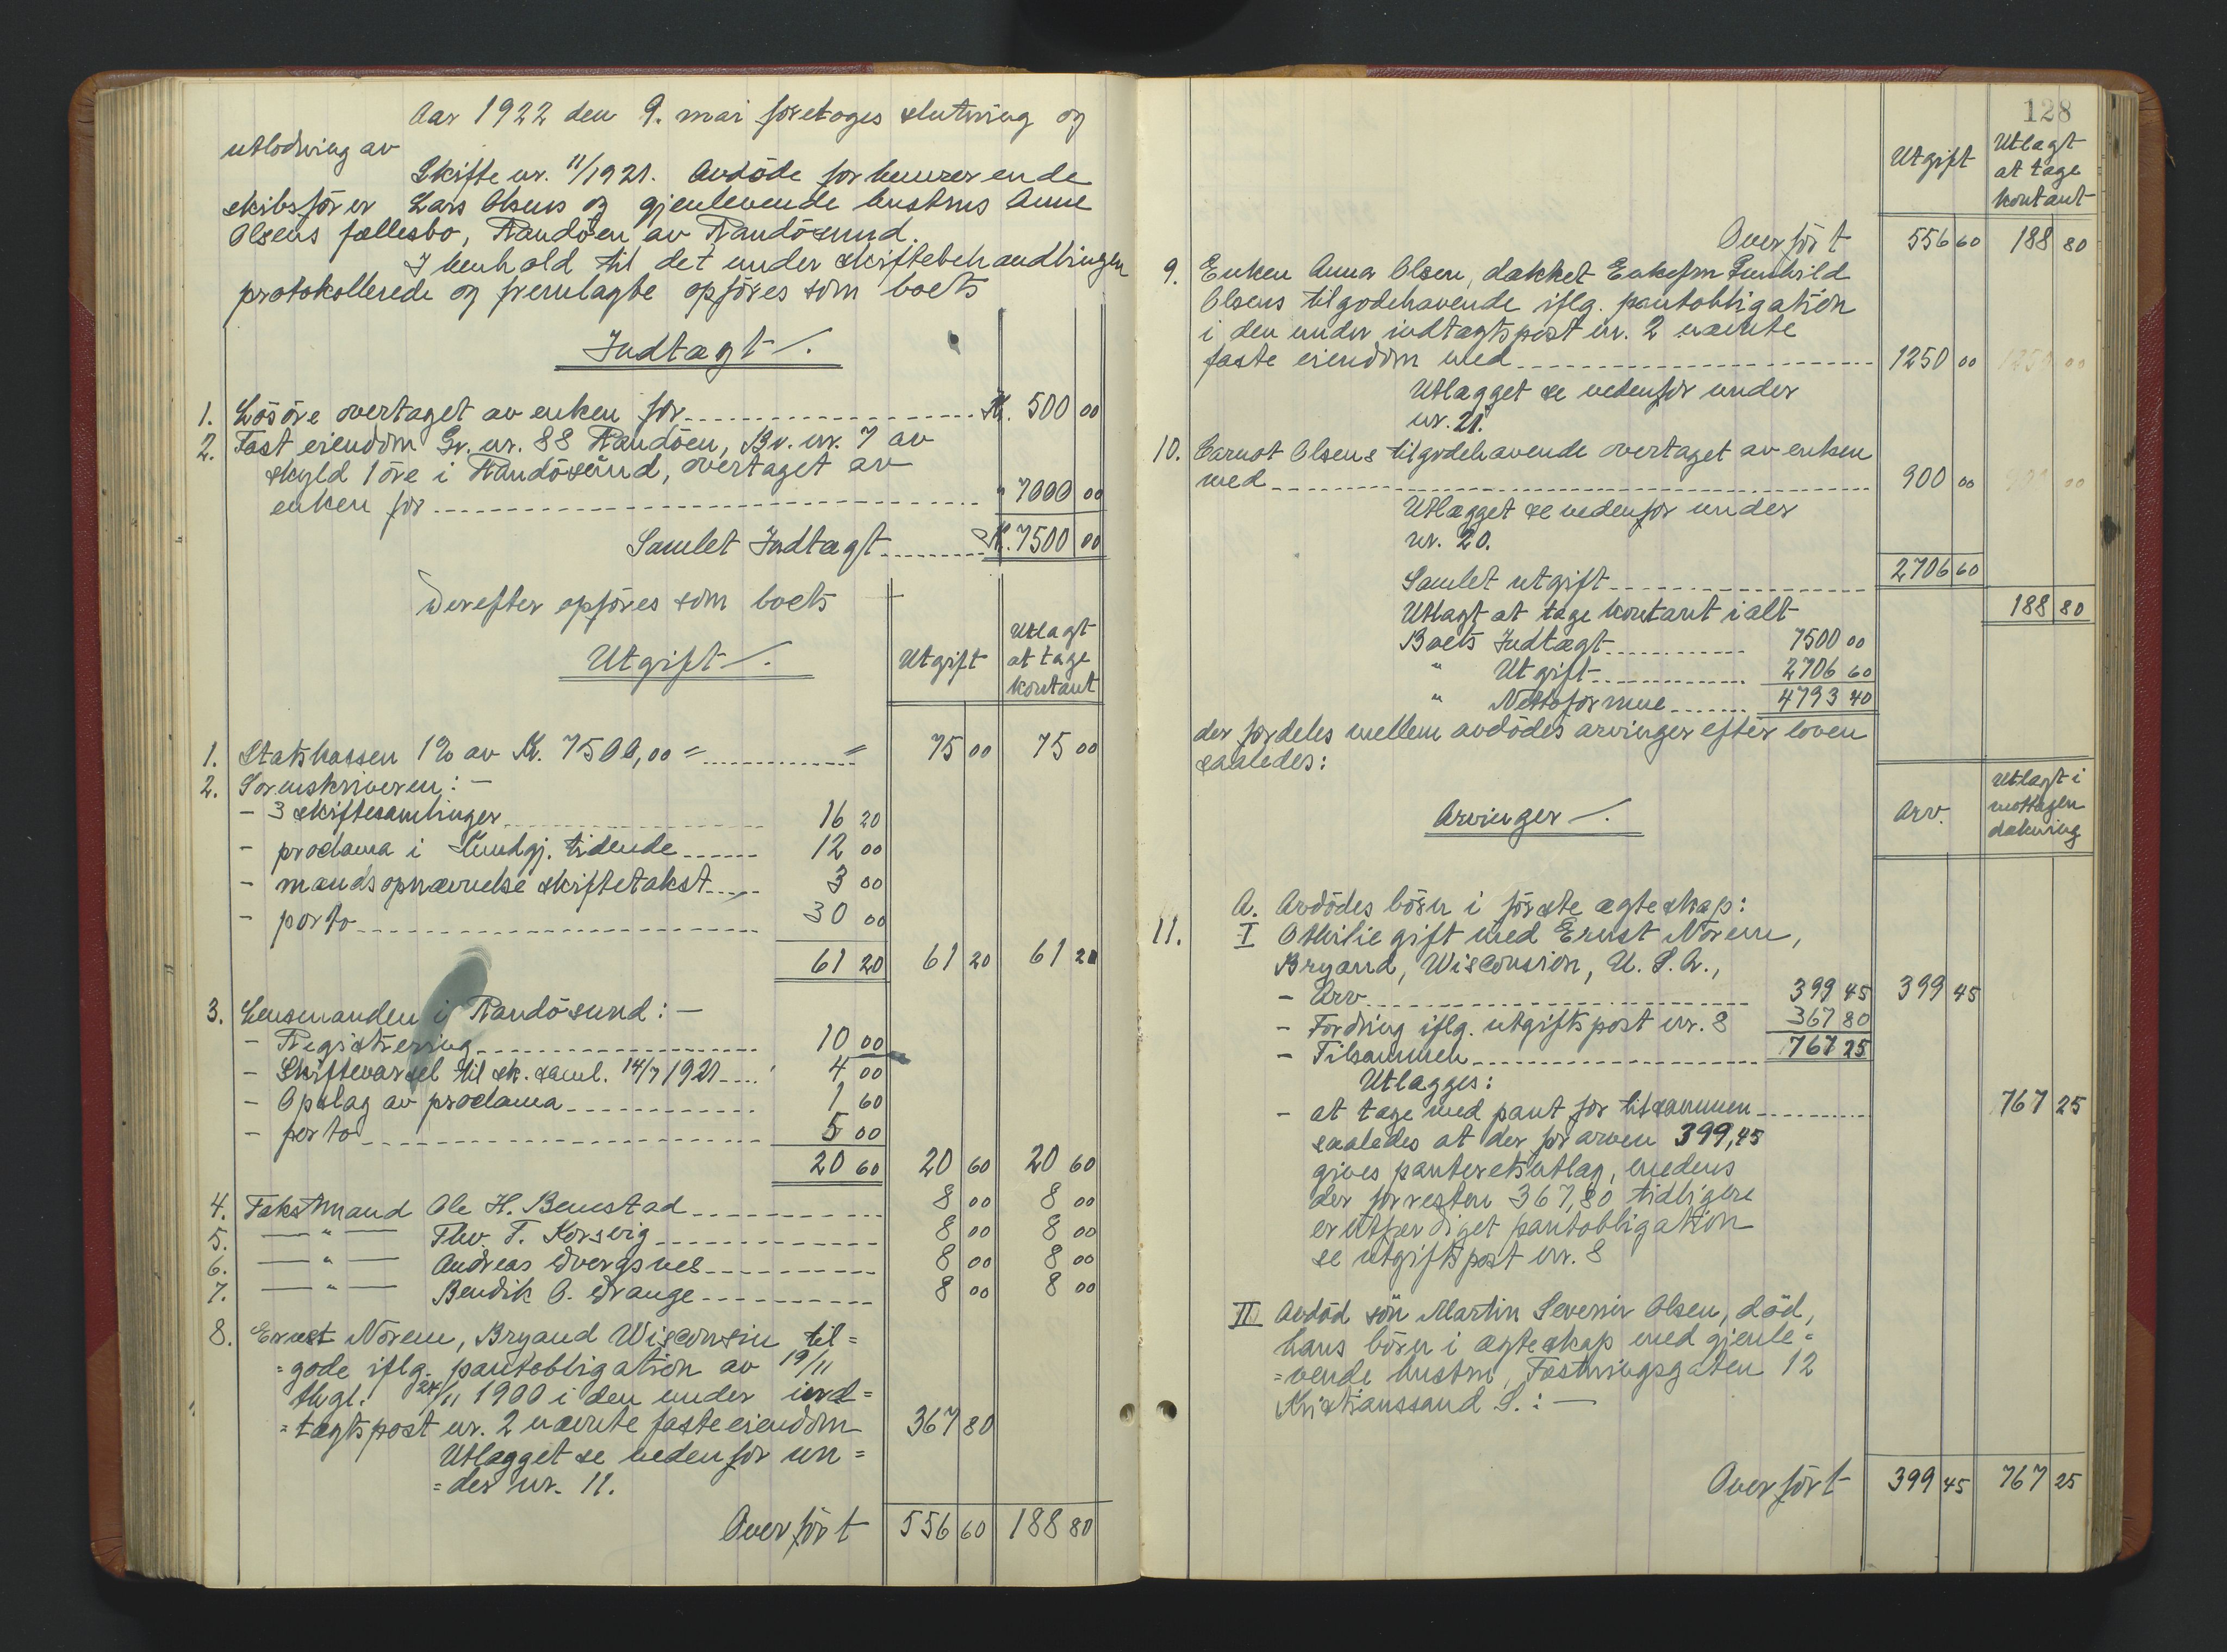 Aar 1922 den 9. mai foretoges slutning og
utlodning av
Skifte nr. 11/1921. Avdöde forhenværende
skibsförer Lars Olsens og gjenlevende hustrus Anne
Olsens fællesbo, Randöen av Randösund.
I henhold til det under skiftebehandlingen
protokollerede og fremlagte opföres som boets
Indtægt /.
1. Lösöre overtaget av enken for K. 500 00
2. Fast eiendom Gr. nr. 88 Randöen, Br. nr. 7 av
skyld 1 öre i Randösund, overtaget av
enken for " 7000 00
Samlet Indtægt K. 7500 00
Derefter opföres som boets
Utgift /.
Utgift
Utlagt
at tage
kontant
1. Statskassen 1% av K. 7500,00 = = 75 00 75 00
2. Sorenskriveren: -
- 3 skiftesamlinger 16 20
- proclama i Kundgj. tidende 12 00
- mandsopnævnelse skiftetakst 3 00
- porto 30 00
61 20 61 20 61 20
3. Lensmanden i Randösund: -
- Registrering 10 00
- Skiftevarsel til sk. saml. 14/7 1921 4 00
- Opslag av proclama 1 60
- porto 5 00
20 60 20 60 20 60
4. Takstmand Ole H. Benestad 8 00 8 00
5. — " — Thv. T. Korsvig 8 00 8 00
6. — " — Andreas Dvergsnes 8 00 8 00
7. — " — Bendik O. Drange 8 00 8 00
8. Ernst Norem, Bryand Wisconsin til=
=gode iflg. pantobligation av 19/11
thgl. 24/11 1900 i den under ind=
=tægtspost nr. 2 nævnte faste eiendom 367 80
Utlægget se nedenfor un=
=der nr. 11.
Overfört 556 60 188 80
128
Utgift
Utlagt
at tage
kontant
Overfört 556 60 188 80
9. Enken Anna Olsen, dækket Enkefru Gunhild
Olsens tilgodehavende iflg. pantobligation
i den under indtægtspost nr. 2 nævnte
faste eiendom med 1250 00 1250 00
Utlægget se nedenfor under
nr. 21.
10. Carnot Olsens tilgodehavende overtaget av enken
med 900 00 900 00
Utlægget se nedenfor under
nr. 20.
Samlet utgift 2706 60
Utlagt at tage kontant i alt 188 80
Boets Indtægt 7500 00
" Utgift 2706 60
" Nettoformue 4793 40
der fordeles mellem avdödes arvinger efter loven
saaledes:
Arvinger /.
Arv.
Utlagt i
mottagen
dækning
A. Avdödes börn i förste ægteskap:
11. I Othilie gift med Ernst Norem,
Bryand, Wisconsion, U. S. A.,
- Arv 399 45 399 45
- Fordring iflg. utgiftspost nr. 8 367 80
- Tilsammen 767 25
Utlægges:
- at tage med pant for tilsammen 767 25
saaledes at der for arven 399,45
gives panteretsutlæg, medens
der for resten 367,80 tidligere
er utfærdiget pantobligation
se utgiftspost nr. 8
II Avdöd sön Martin Severin Olsen, död,
hans börn i ægteskap med gjenle=
=vende hustru, Fæstningsgaten 12
Kristianssand S.: —
Overfört 399 45 767 25